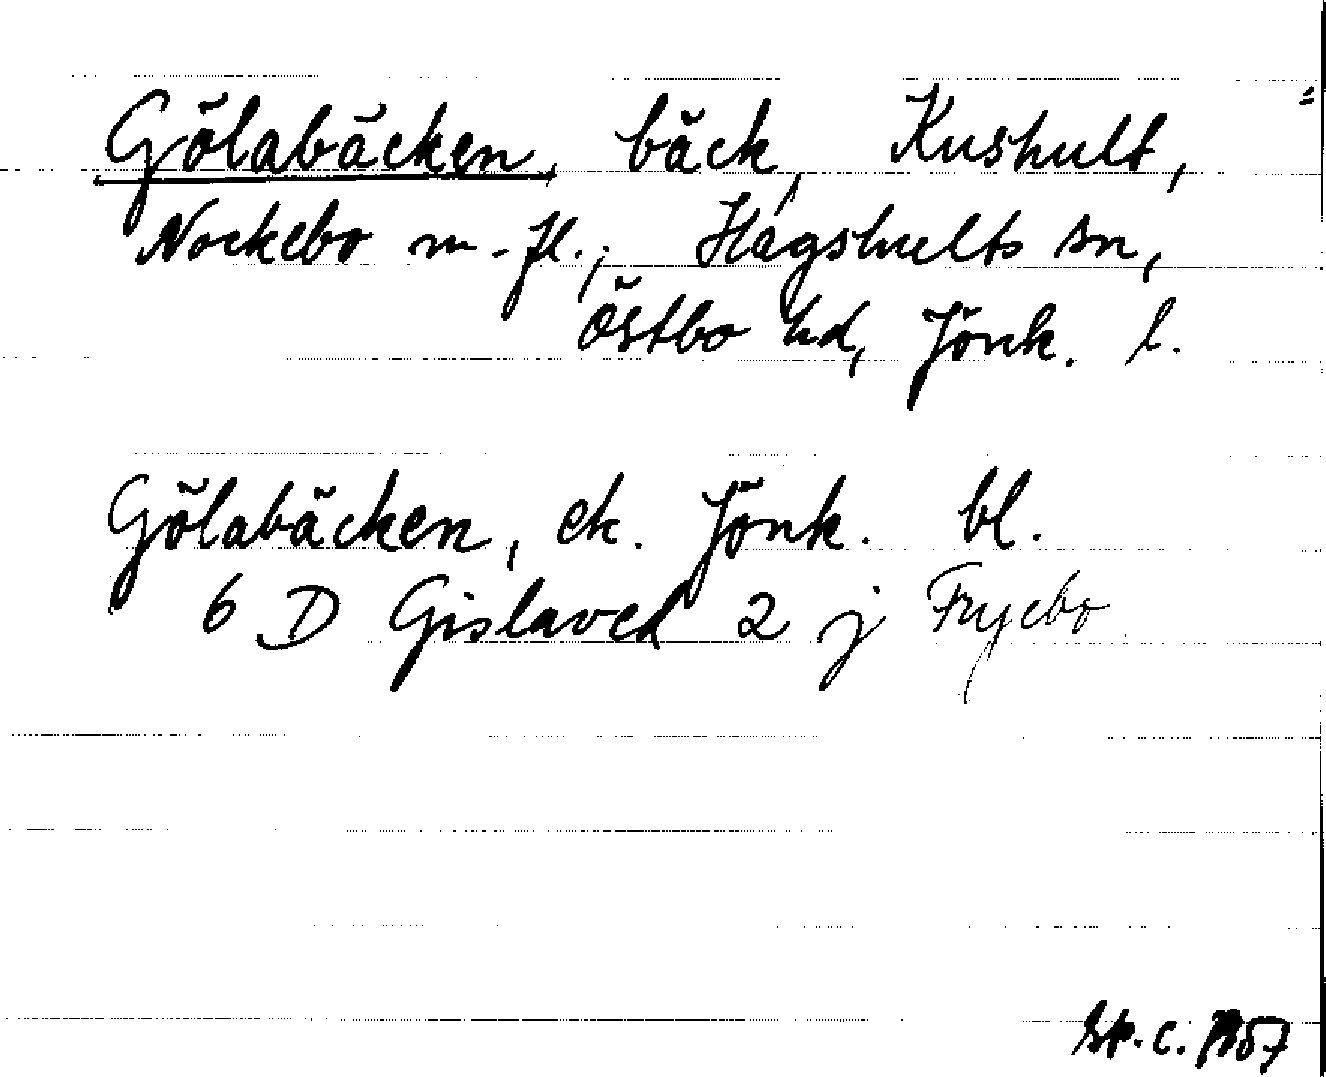 Gölabäcken, bäck, Kushult,
Nockebo m.fl., Hagshults sn,
Östbo hd, Jönk. l.
Gölabäcken, ek. Jönk. bl.
6 D Gislaved 2 j Fryebo